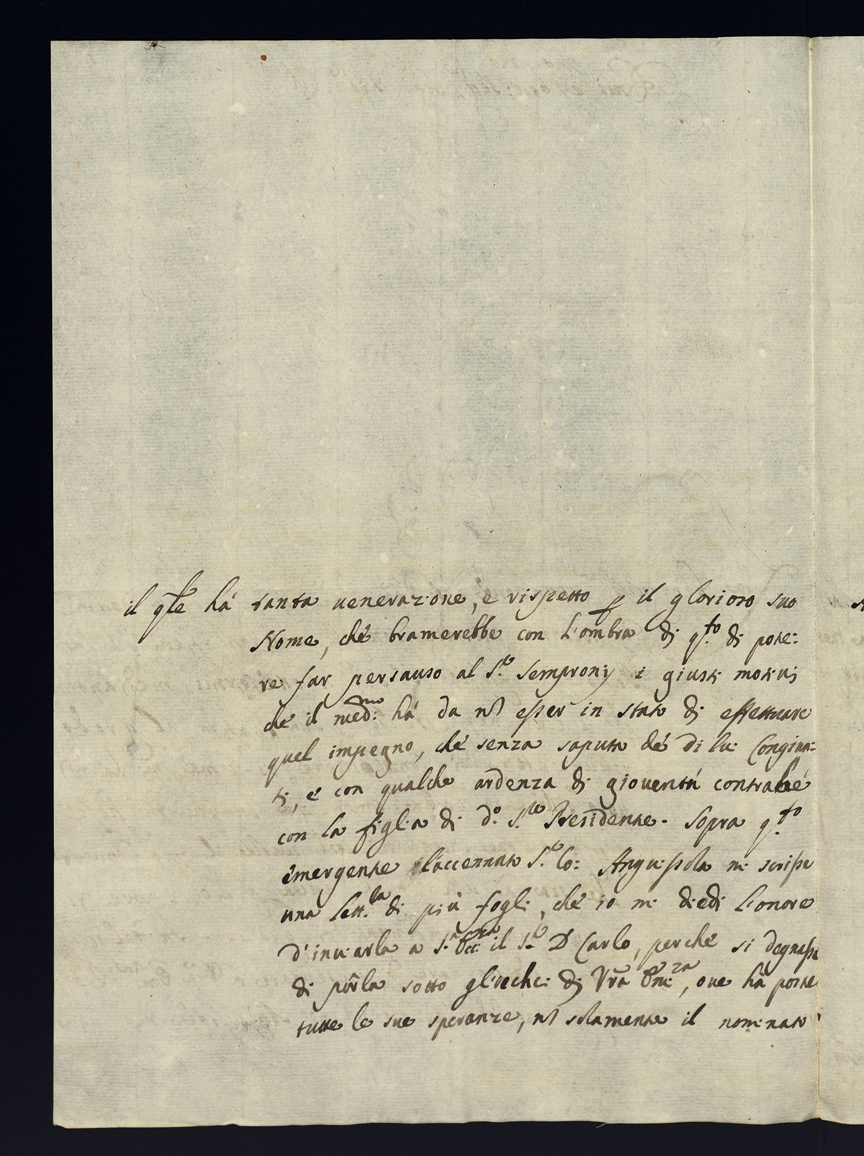 il qle há tanta uenerazione, è rispetto p il glorioso suo
Nome, ché bramerebbe con l'ombra di q.to di pote:
re far persauso al S.re Semprony i giusti motiui
ché il med.mo há da nō esser in stato di effettuare
quel impegno, ché senza saputa dé di lui Congiun:
ti, é con qualche ardenza di giouentú contrahé
con la figlia di d.o S.re Presidente. Sopra q.to
émergente l'accennato S.r Co: Anguissola mi scrisse
una lett.la di piú fogli, ché io mi diedi l'onore
d'inuiarla a S.a Ecc.za il S.r D Carlo, perché si degnasse
di porla sotto gl'occhi di Vrā Em.za, oue há poste
tutte le sue speranze, nō solamente il nominato